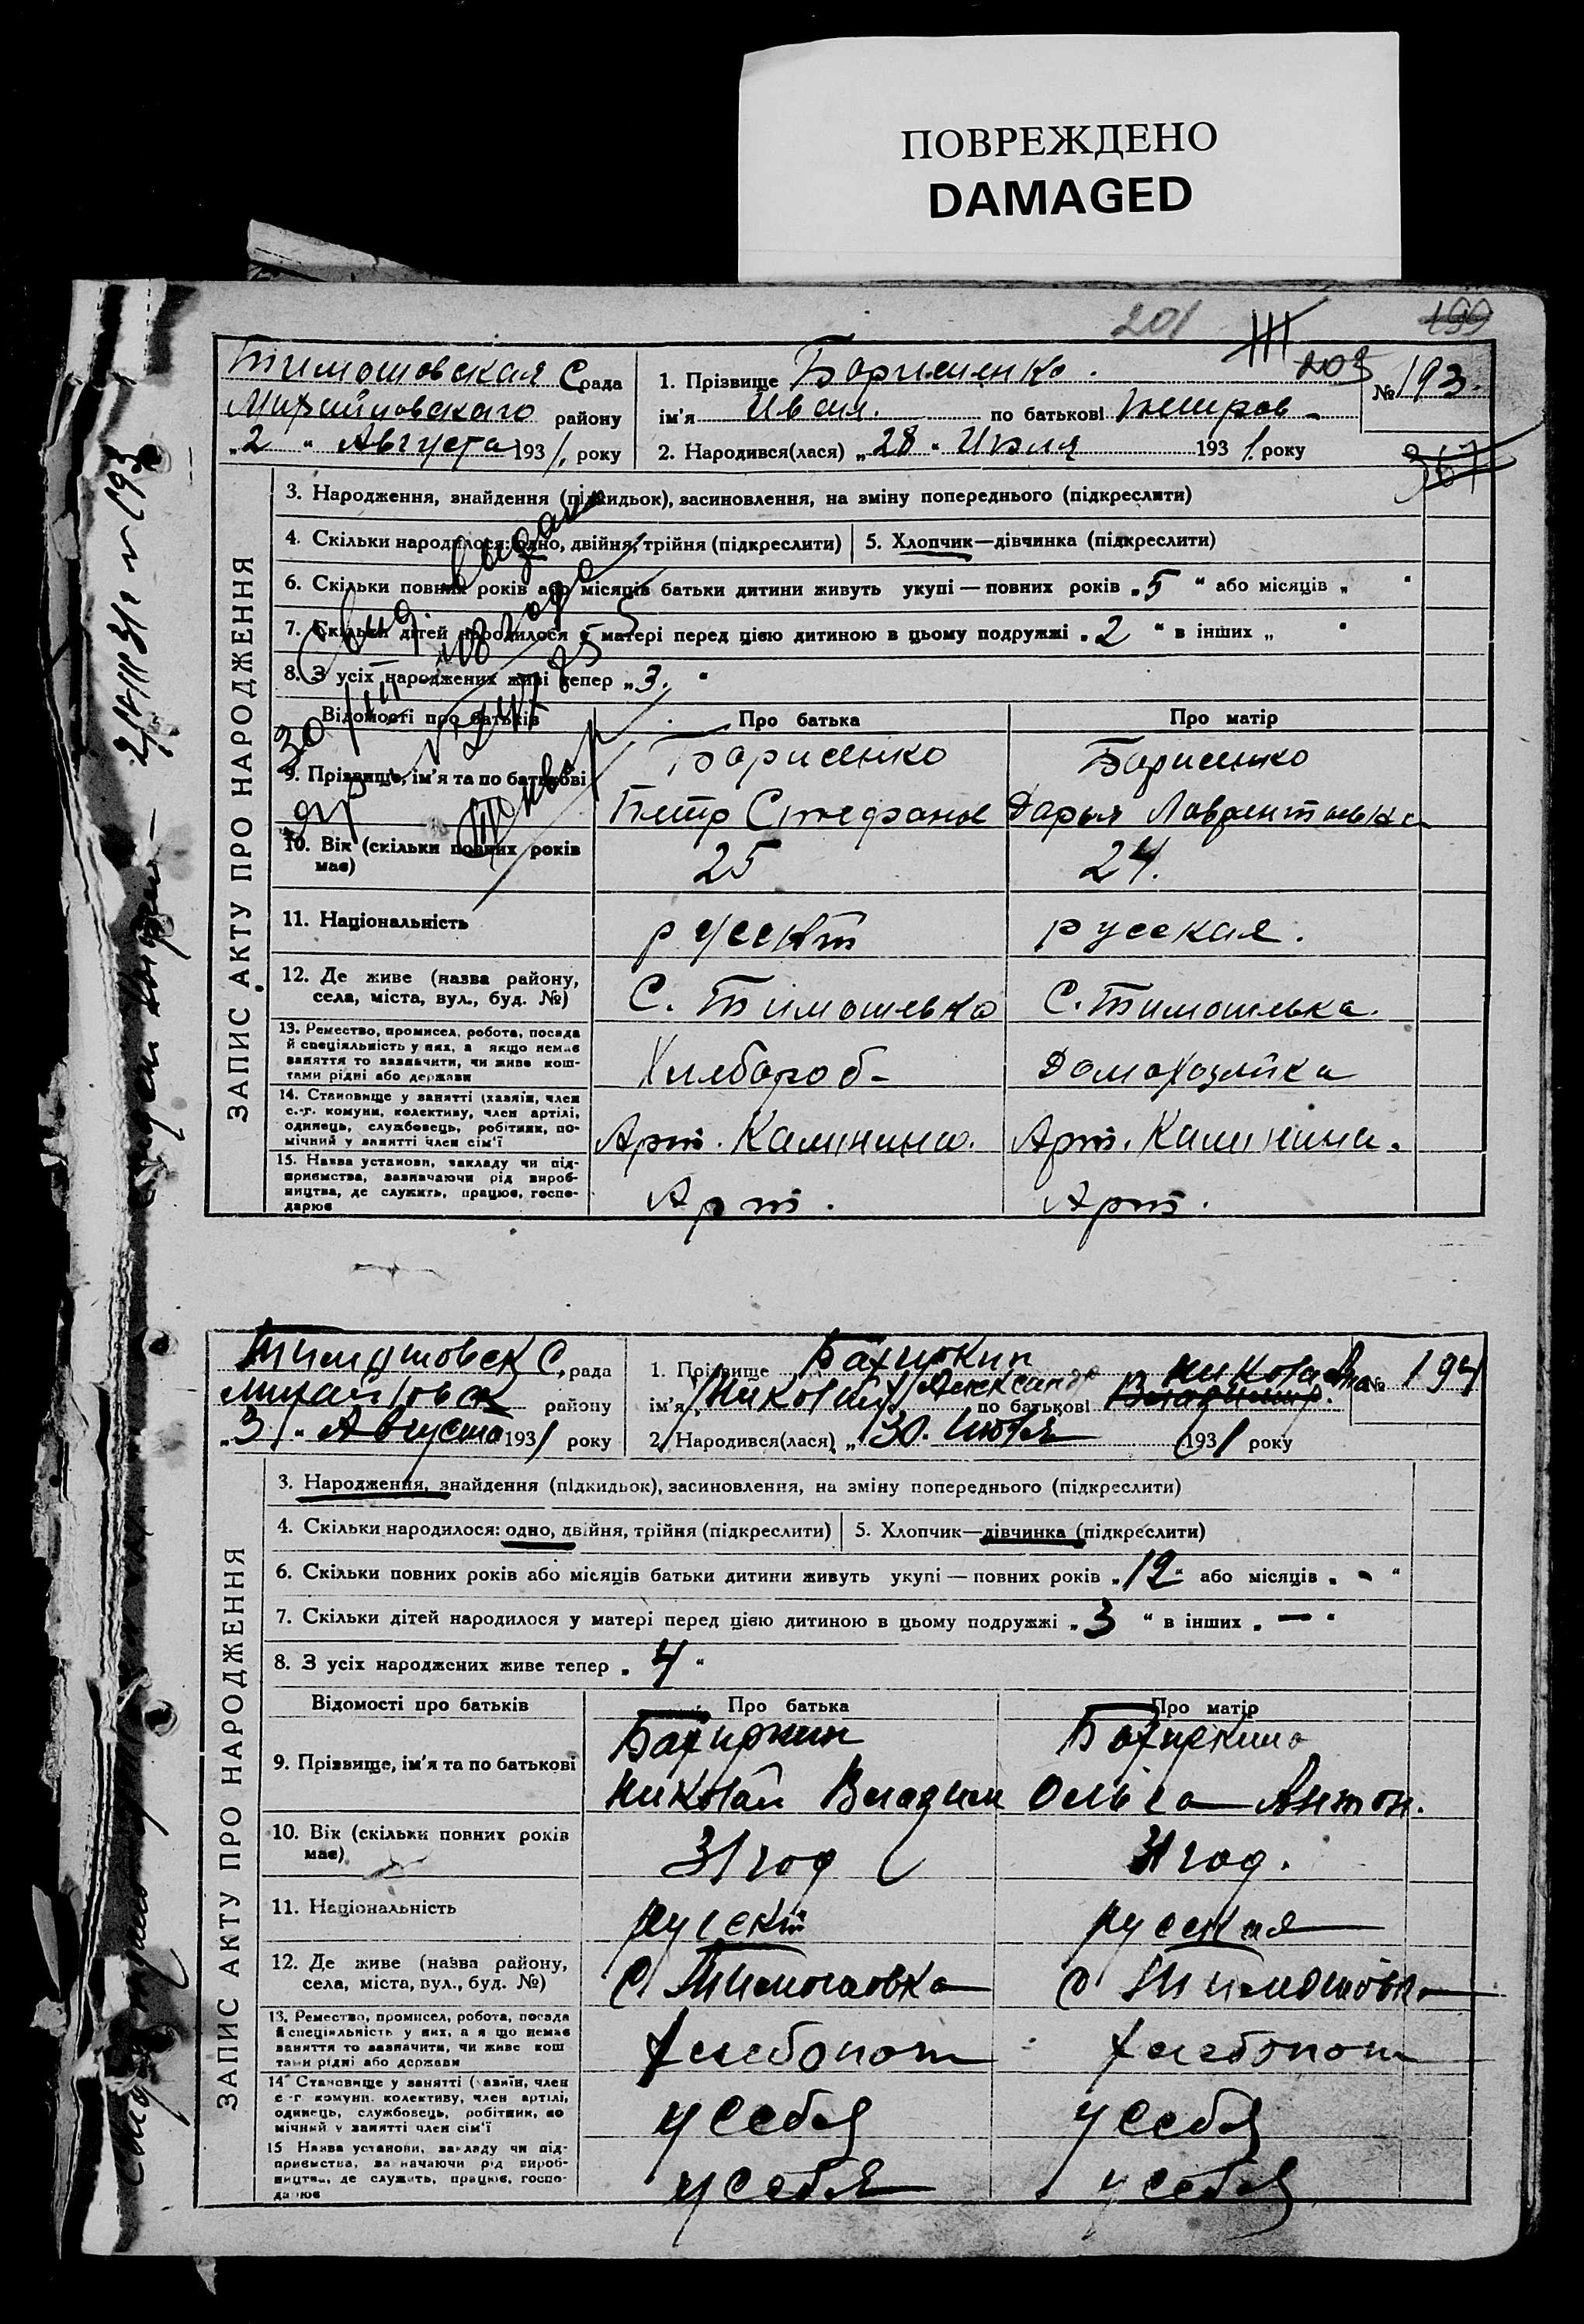 ПОВРЕЖДЕНО
DAMAGED
201
199
ЗАПИС АКТУ ПРО НАРОДЖЕННЯ
Тимошовская С рада
Михайловского району
„2“ Августа 1931. року
1. Прізвище Борисенко.
203
№ 193.
ім'я Иван. по батькові Петров
2. Народився(лася) „28“ Июля 1931. року
367
3. Народження, знайдення (підкидьок), засиновлення, на зміну попереднього (підкреслити)
4. Скільки народилося: одно, двійня, трійня (підкреслити) 5. Хлопчик—дівчинка (підкреслити)
6. Скільки повних років або місяців батьки дитини живуть укупі — повних років „5“ або місяців „ “
7. Скільки дітей народилося у матері перед цією дитиною в цьому подружжі „2“ в інших „ “
8. З усіх народжених живі тепер „3.“
Відомості про батьків Про батька Про матір
9. Прізвище, ім'я та по батькові
Борисенко Борисенко
Петр Стефанов Дарья Лаврентьевна
10. Вік (скільки повних років має) 25 24.
11. Національність русский русская.
12. Де живе (назва району, села, міста, вул., буд. №) С. Тимошевка С. Тимошевка.
13. Ремество, промисел, робота, посада й спеціяльність у них, а якщо немає заняття то зазначити, чи живе коштами рідні або держави
Хлебороб- Домохозяйка
14. Становище у занятті (хазяїн, член с.-г. комуни, колективу, член артілі, одинець, службовець, робітник, помічний у занятті член сім'ї
Арт. Калинина. Арт. Калинина.
15. Назва установи, закладу чи підприємства, зазначаючи рід виробництва, де служить, працює, господарює
Арт. Арт.
ЗАПИС АКТУ ПРО НАРОДЖЕННЯ
Тимошовск С, рада
Михайловск району
„3“ Августа 1931 року
1. Прізвище Бахиркин
Николаевна № 194
ім'я Николай Александр по батькові Владимир.
2. Народився(лася) „30. Июля 1931 року
3. Народження, знайдення (підкидьок), засиновлення, на зміну попереднього (підкреслити)
4. Скільки народилося: одно, двійня, трійня (підкреслити) 5. Хлопчик—дівчинка (підкреслити)
6. Скільки повних років або місяців батьки дитини живуть укупі — повних років „12“ або місяців „-“
7. Скільки дітей народилося у матері перед цією дитиною в цьому подружжі „3“ в інших „—“
8. З усіх народжених живе тепер „4“
Відомості про батьків Про батька Про матір
9. Прізвище, ім'я та по батькові
Бахиркин Бахиркина
Николай Владим Ольга Антон.
10. Вік (скільки повних років має) 31 год 31 год.
11. Національність русский русская
12. Де живе (назва району, села, міста, вул., буд. №) С Тимошовка С Тимошовка
13. Ремество, промисел, робота, посада й спеціяльність у них, а якщо немає заняття то зазначити, чи живе коштами рідні або держави
хлебопаш хлебопаш
14 Становище у занятті (хазяїн, член с-г комуни, колективу, член артілі, одинець, службовець, робітник, помічний у занятті член сім'ї
у себя у себя
15 Назва установи, закладу чи підприємства, зазначаючи рід виробництва, де служить, працює, господарює
у себя у себя